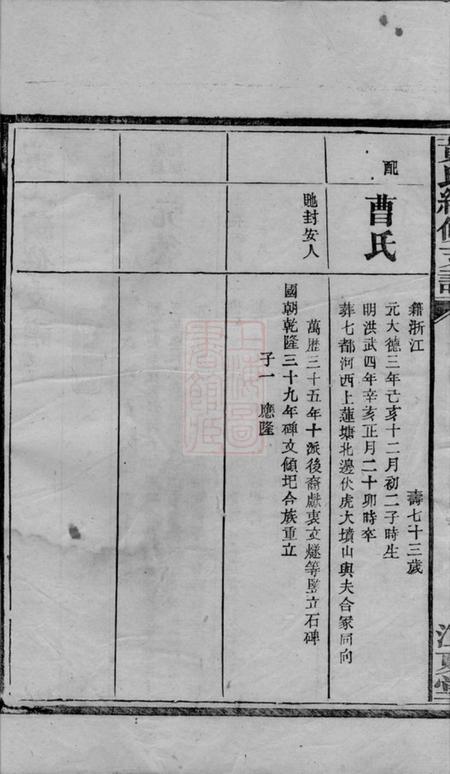 黃氏續修支譜
江夏堂
配
曹氏
籍浙江　壽七十三歲
元大德三年己亥十二月初二子時生
明洪武四年辛亥正月二十卯時卒
葬七都河西上蓮塘北邊伏虎大墳山與夫合冢同向
貤封安人
萬歷三十五年十派後裔獻衷文燧等豎立石碑
國朝乾隆三十九年碑文傾圮合族重立
子一　應隆
上海圖書館藏